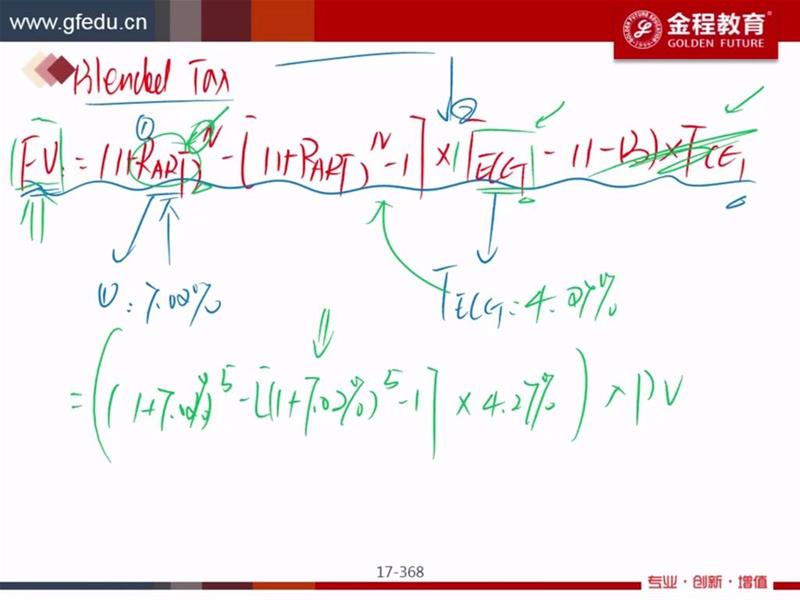 www.gfedu.cn
金程教育
GOLDEN FUTURE
Blended Tax
①
②
FV = (1+R_ART)^N - [(1+R_ART)^N - 1] × T_ECGT - (1-B) × T_CG
①: 7.02%
T_ECGT = 4.27%
= ((1+7.02%)^5 - [(1+7.02%)^5 - 1] × 4.27%) × PV
17-368
专业·创新·增值